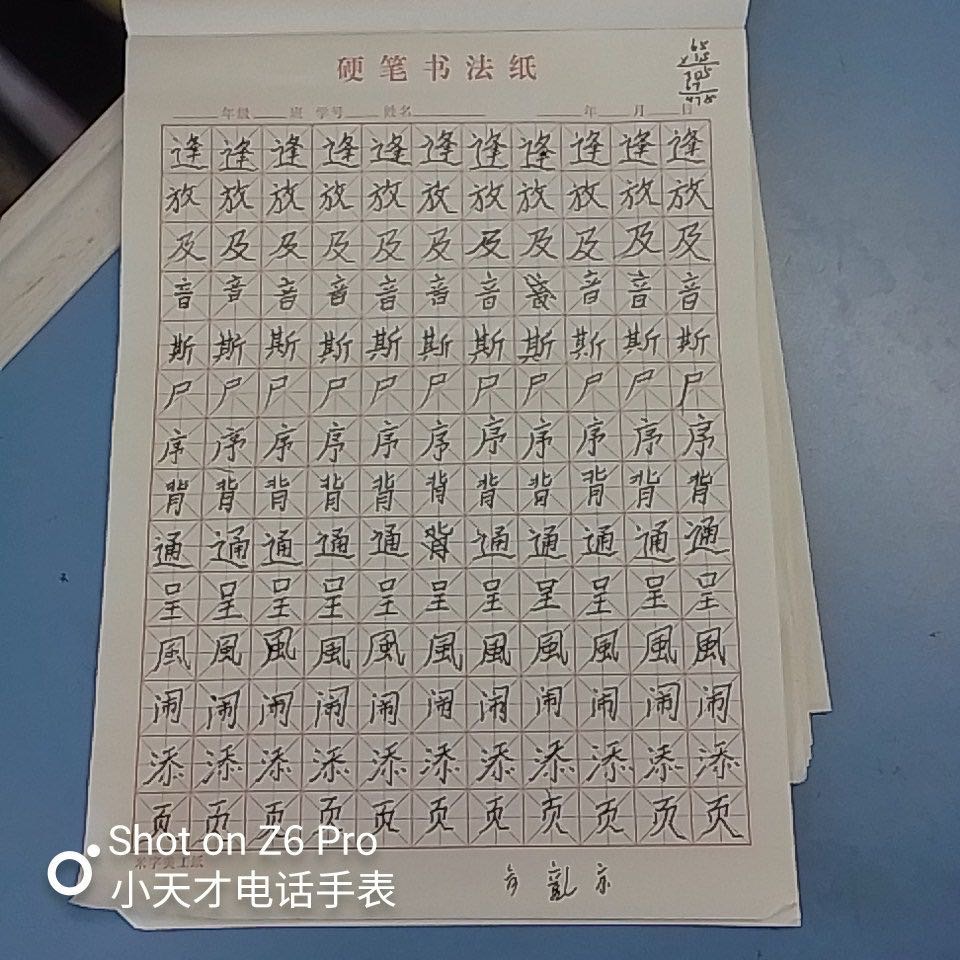 硬笔书法纸
65
×15
305
67
475
年级 班 学号 姓名 年 月 日
逢逢逢逢逢逢逢逢逢逢逢
放放放放放放放放放放放
及及及及及及及及及及及
音音音音音音音音音音
斯斯斯斯斯斯斯斯斯斯斯
尸尸尸尸尸尸尸尸尸尸尸
序序序序序序序序序序序
背背背背背背背背背背背
通通通通通背通通通通通
呈呈呈呈呈呈呈呈呈呈呈
風風風風風風風風風風風
闹闹闹闹闹闹闹闹闹闹闹
添添添添添添添添添添添
页页页页页页页页页页页
米字美工纸
Shot on Z6 Pro
小天才电话手表